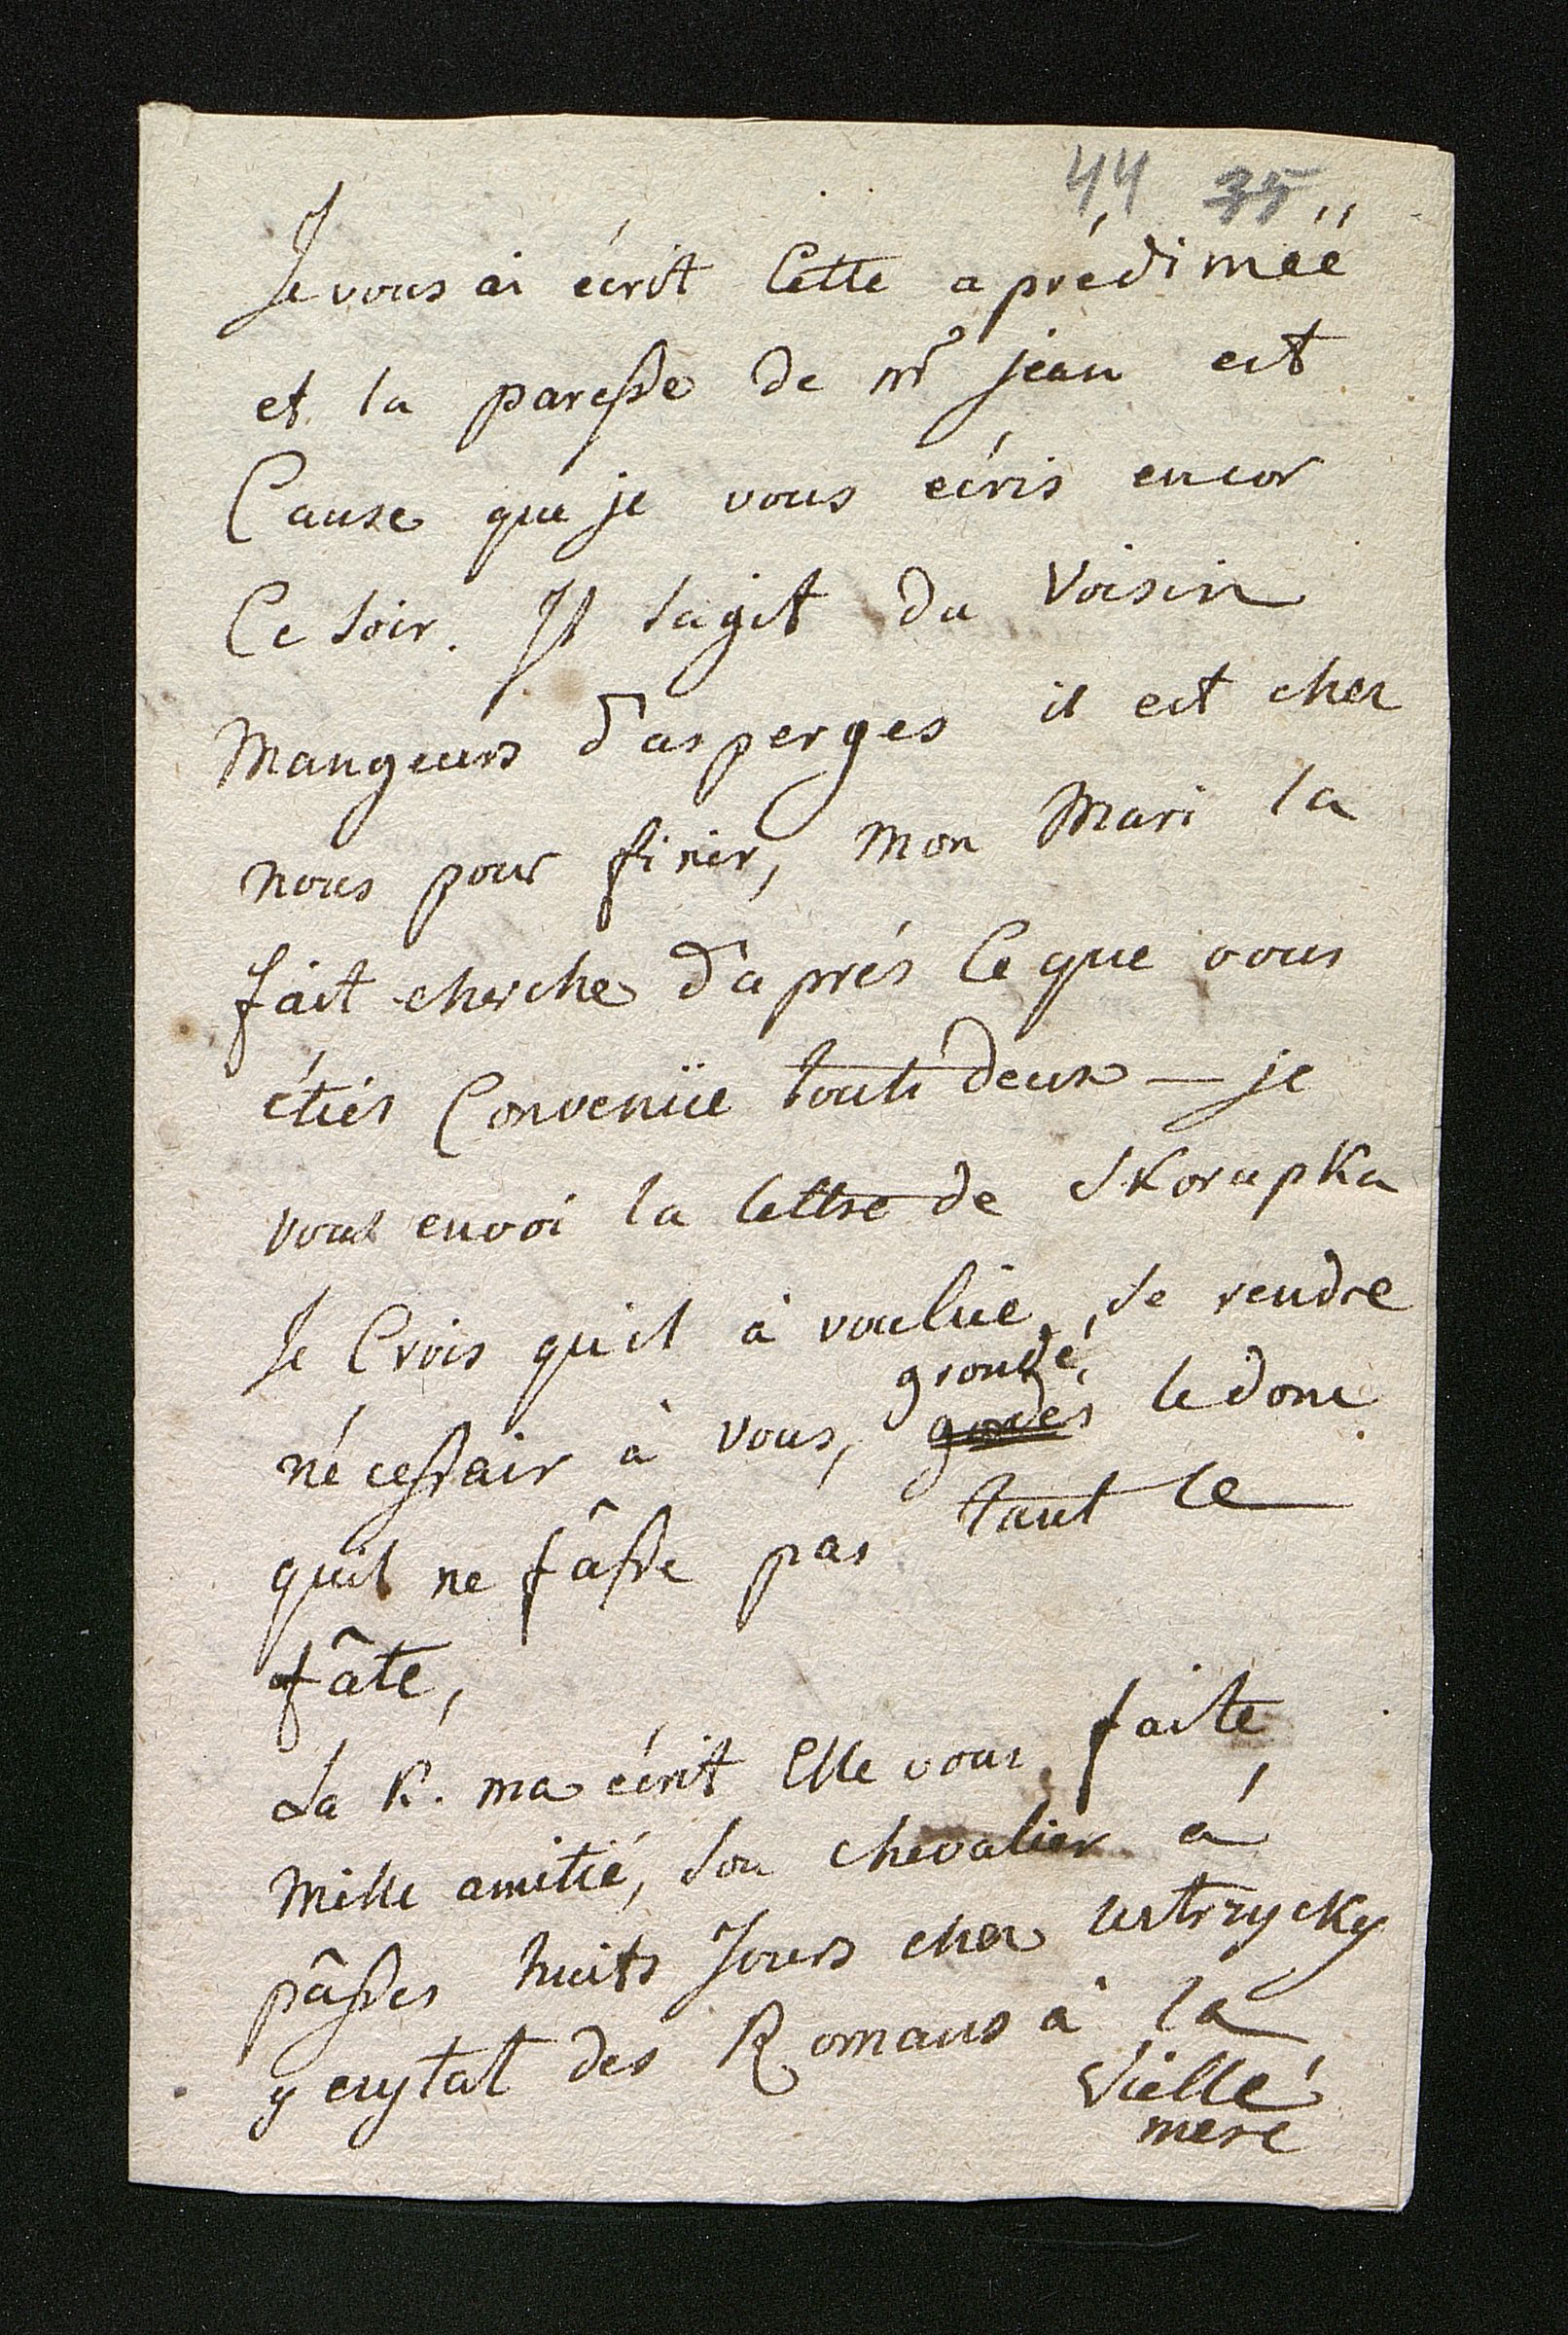 44 35
Je vous ai écrit Cette aprédiméë
et la paresse de mr jean est
Cause que je vous ecris encor
Ce soir. Il sagit du Voisin
Mangeurs d'asperges il est chez
nous pour finir, mon Mari la
fait cherche d'aprés Ce que vous
étiés Convenüe touts deux — je
vous envoi la lettre de Skorupka
Je Crois quil à voulüe, se rendre
grondé,
nécessair à vous, gordés le donc
quil ne fâsse pas tant le
fâte,
La K. ma écrit Elle vous faite
Mille amitié, son chevalier a
pâsses huits Jours chez Ustrzycky
y czytat des Romans à la
Vielle
mere